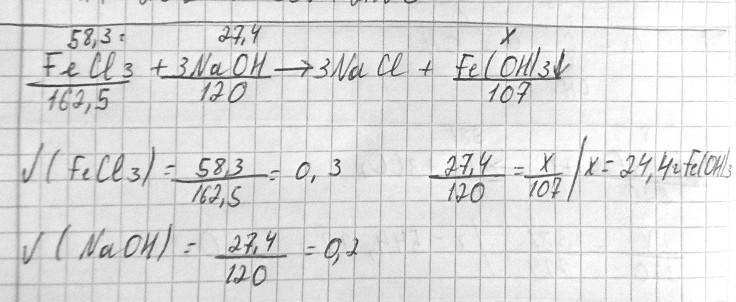 58,3г 27,4 x
FeCl3 + 3NaOH → 3NaCl + Fe(OH)3↓
162,5 120 107
√(FeCl3) = 58,3/162,5 = 0,3 27,4/120 = x/107 / x = 24,4г Fe(OH)3
√(NaOH) = 27,4/120 = 0,2